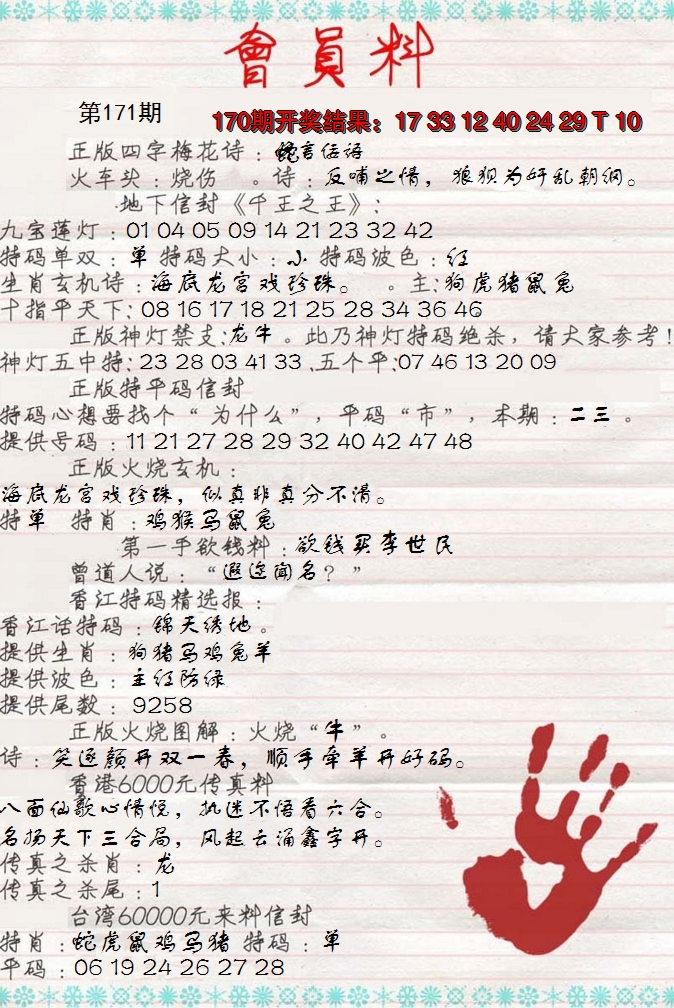 會員料
第171期
170期开奖结果：17 33 12 40 24 29 T 10
正版四字梅花诗：蛇言伍语
火车头：烧伤 。诗：反哺之情，狼狈为奸乱朝纲。
地下信封《千王之王》：
九宝莲灯：01 04 05 09 14 21 23 32 42
特码单双：单 特码大小：小 特码波色：红
生肖玄机诗：海底龙宫戏珍珠。 。主：狗虎猪鼠兔
十指平天下：08 16 17 18 21 25 28 34 36 46
正版神灯禁支：龙牛。此乃神灯特码绝杀，请大家参考！
神灯五中特：23 28 03 41 33 .五个平：07 46 13 20 09
正版特平码信封
特码心想要找个“为什么”，平码“市”，本期：二三。
提供号码：11 21 27 28 29 32 40 42 47 48
正版火烧玄机：
海底龙宫戏珍珠，似真非真分不清。
特单 特肖：鸡猴马鼠兔
第一手欲钱料：欲钱买李世民
曾道人说：“遐迩闻名？”
香江特码精选报：
香江话特码：锦天绣地。
提供生肖：狗猪马鸡兔羊
提供波色：主红防绿
提供尾数：9258
正版火烧图解：火烧“牛”。
诗：笑逐颜开双一春，顺手牵羊开好码。
香港6000元传真料
八面仙歌心情悦，执迷不悟看六合。
名扬天下三合局，风起云涌鑫字开。
传真之杀肖：龙
传真之杀尾：1
台湾60000元来料信封
特肖：蛇虎鼠鸡马猪 特码：单
平码：06 19 24 26 27 28